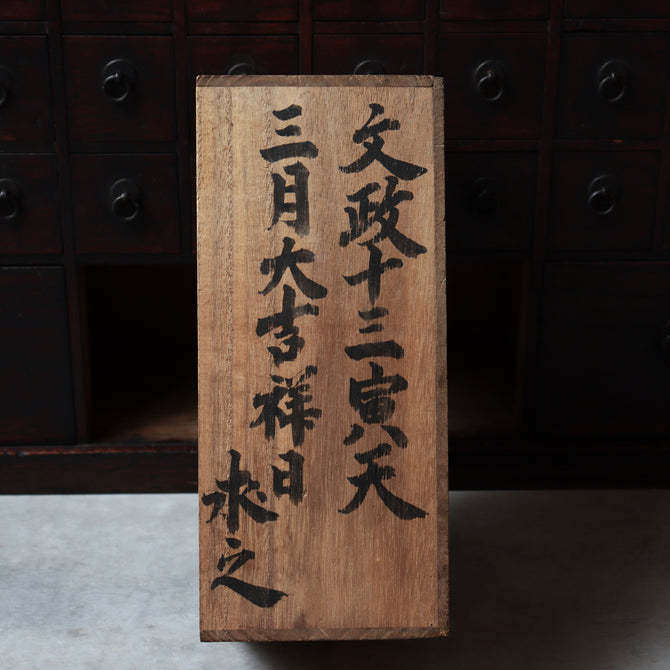 文政十三寅天
三月大吉祥日
求之